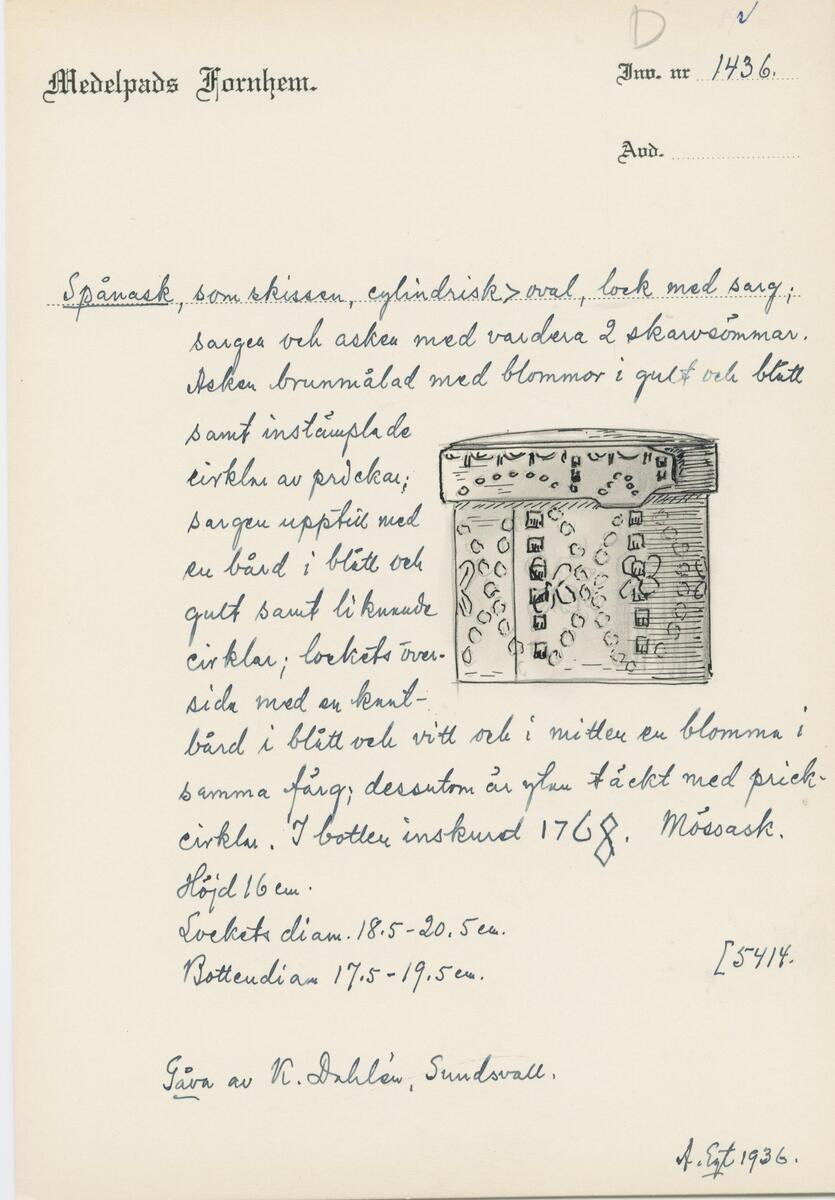 D
Medelpads Fornhem.
Inv. nr 1436.
Avd.
Spånask, som skissen, cylindrisk > oval, lock med sarg;
sargen och asken med vardera 2 skarvsömmar.
Asken brunmålad med blommor i gult och blått
samt instämplade
cirklar av prickar;
sargen upptill med
en bård i blått och
gult samt liknande
cirklar; lockets över-
sida med en kant-
bård i blått och vitt och i mitten en blomma i
samma färg; dessutom är ytan täckt med prick-
cirklar. I botten inskuret 1768. Mössask.
Höjd 16 cm.
Lockets diam. 18.5-20.5 cm.
Bottendiam 17.5-19.5 cm.
[5414.
Gåva av K. Dahlén, Sundsvall.
A. Eqt 1936.